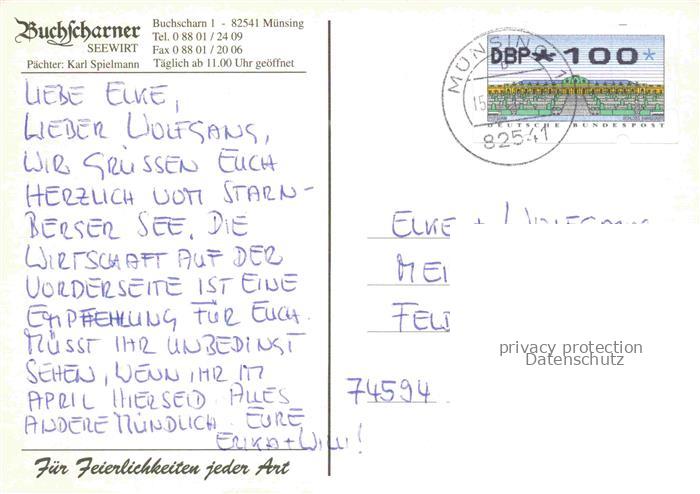 Buchscharner
SEEWIRT
Pächter: Karl Spielmann
Buchscharn 1 - 82541 Münsing
Tel. 0 88 01 / 24 09
Fax 0 88 01 / 20 06
Täglich ab 11.00 Uhr geöffnet
LIEBE ELKE,
LIEBER WOLFGANG,
WIR GRÜSSEN EUCH
HERZLICH VOM STARN-
BERGER SEE. DIE
WIRTSCHAFT AUF DER
VORDERSEITE IST EINE
EMPFEHLUNG FÜR EUCH.
MÜSST IHR UNBEDINGT
SEHEN, WENN IHR IM
APRIL HIERSEID. ALLES
ANDERE MÜNDLICH. EURE
ERIKA + WILLI!
Für Feierlichkeiten jeder Art
MÜNSING 1
15.
82541
DBP * 100 *
DEUTSCHE BUNDESPOST
ELKE + WOLFGANG
MEI
FEL
74594
privacy protection
Datenschutz